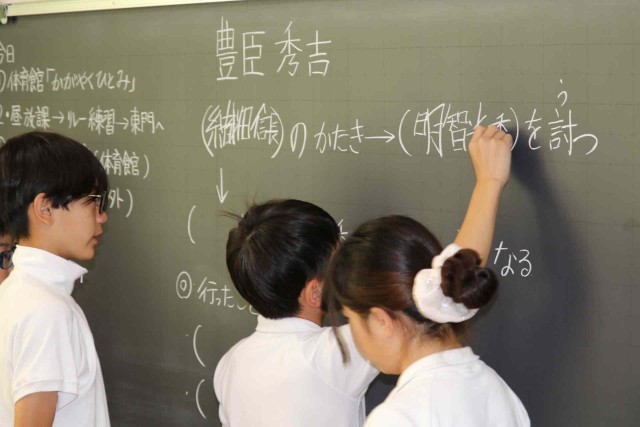 今日
体育館「かがやくひとみ」
昼放課→リレー練習→東門へ
体育館)
豊臣 秀吉
(織田信長)のかたき→(明智光秀)を討つ
う
なる
◎行った